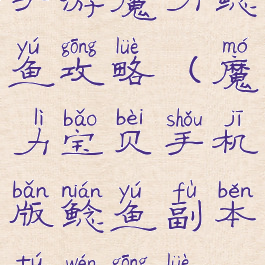 游魔
yú gōng lüè mó
鱼攻略（魔
lì bǎo bèi shǒu jī
力宝贝手机
bǎn nián yú fù běn
版鲶鱼副本
wén gōng lüè